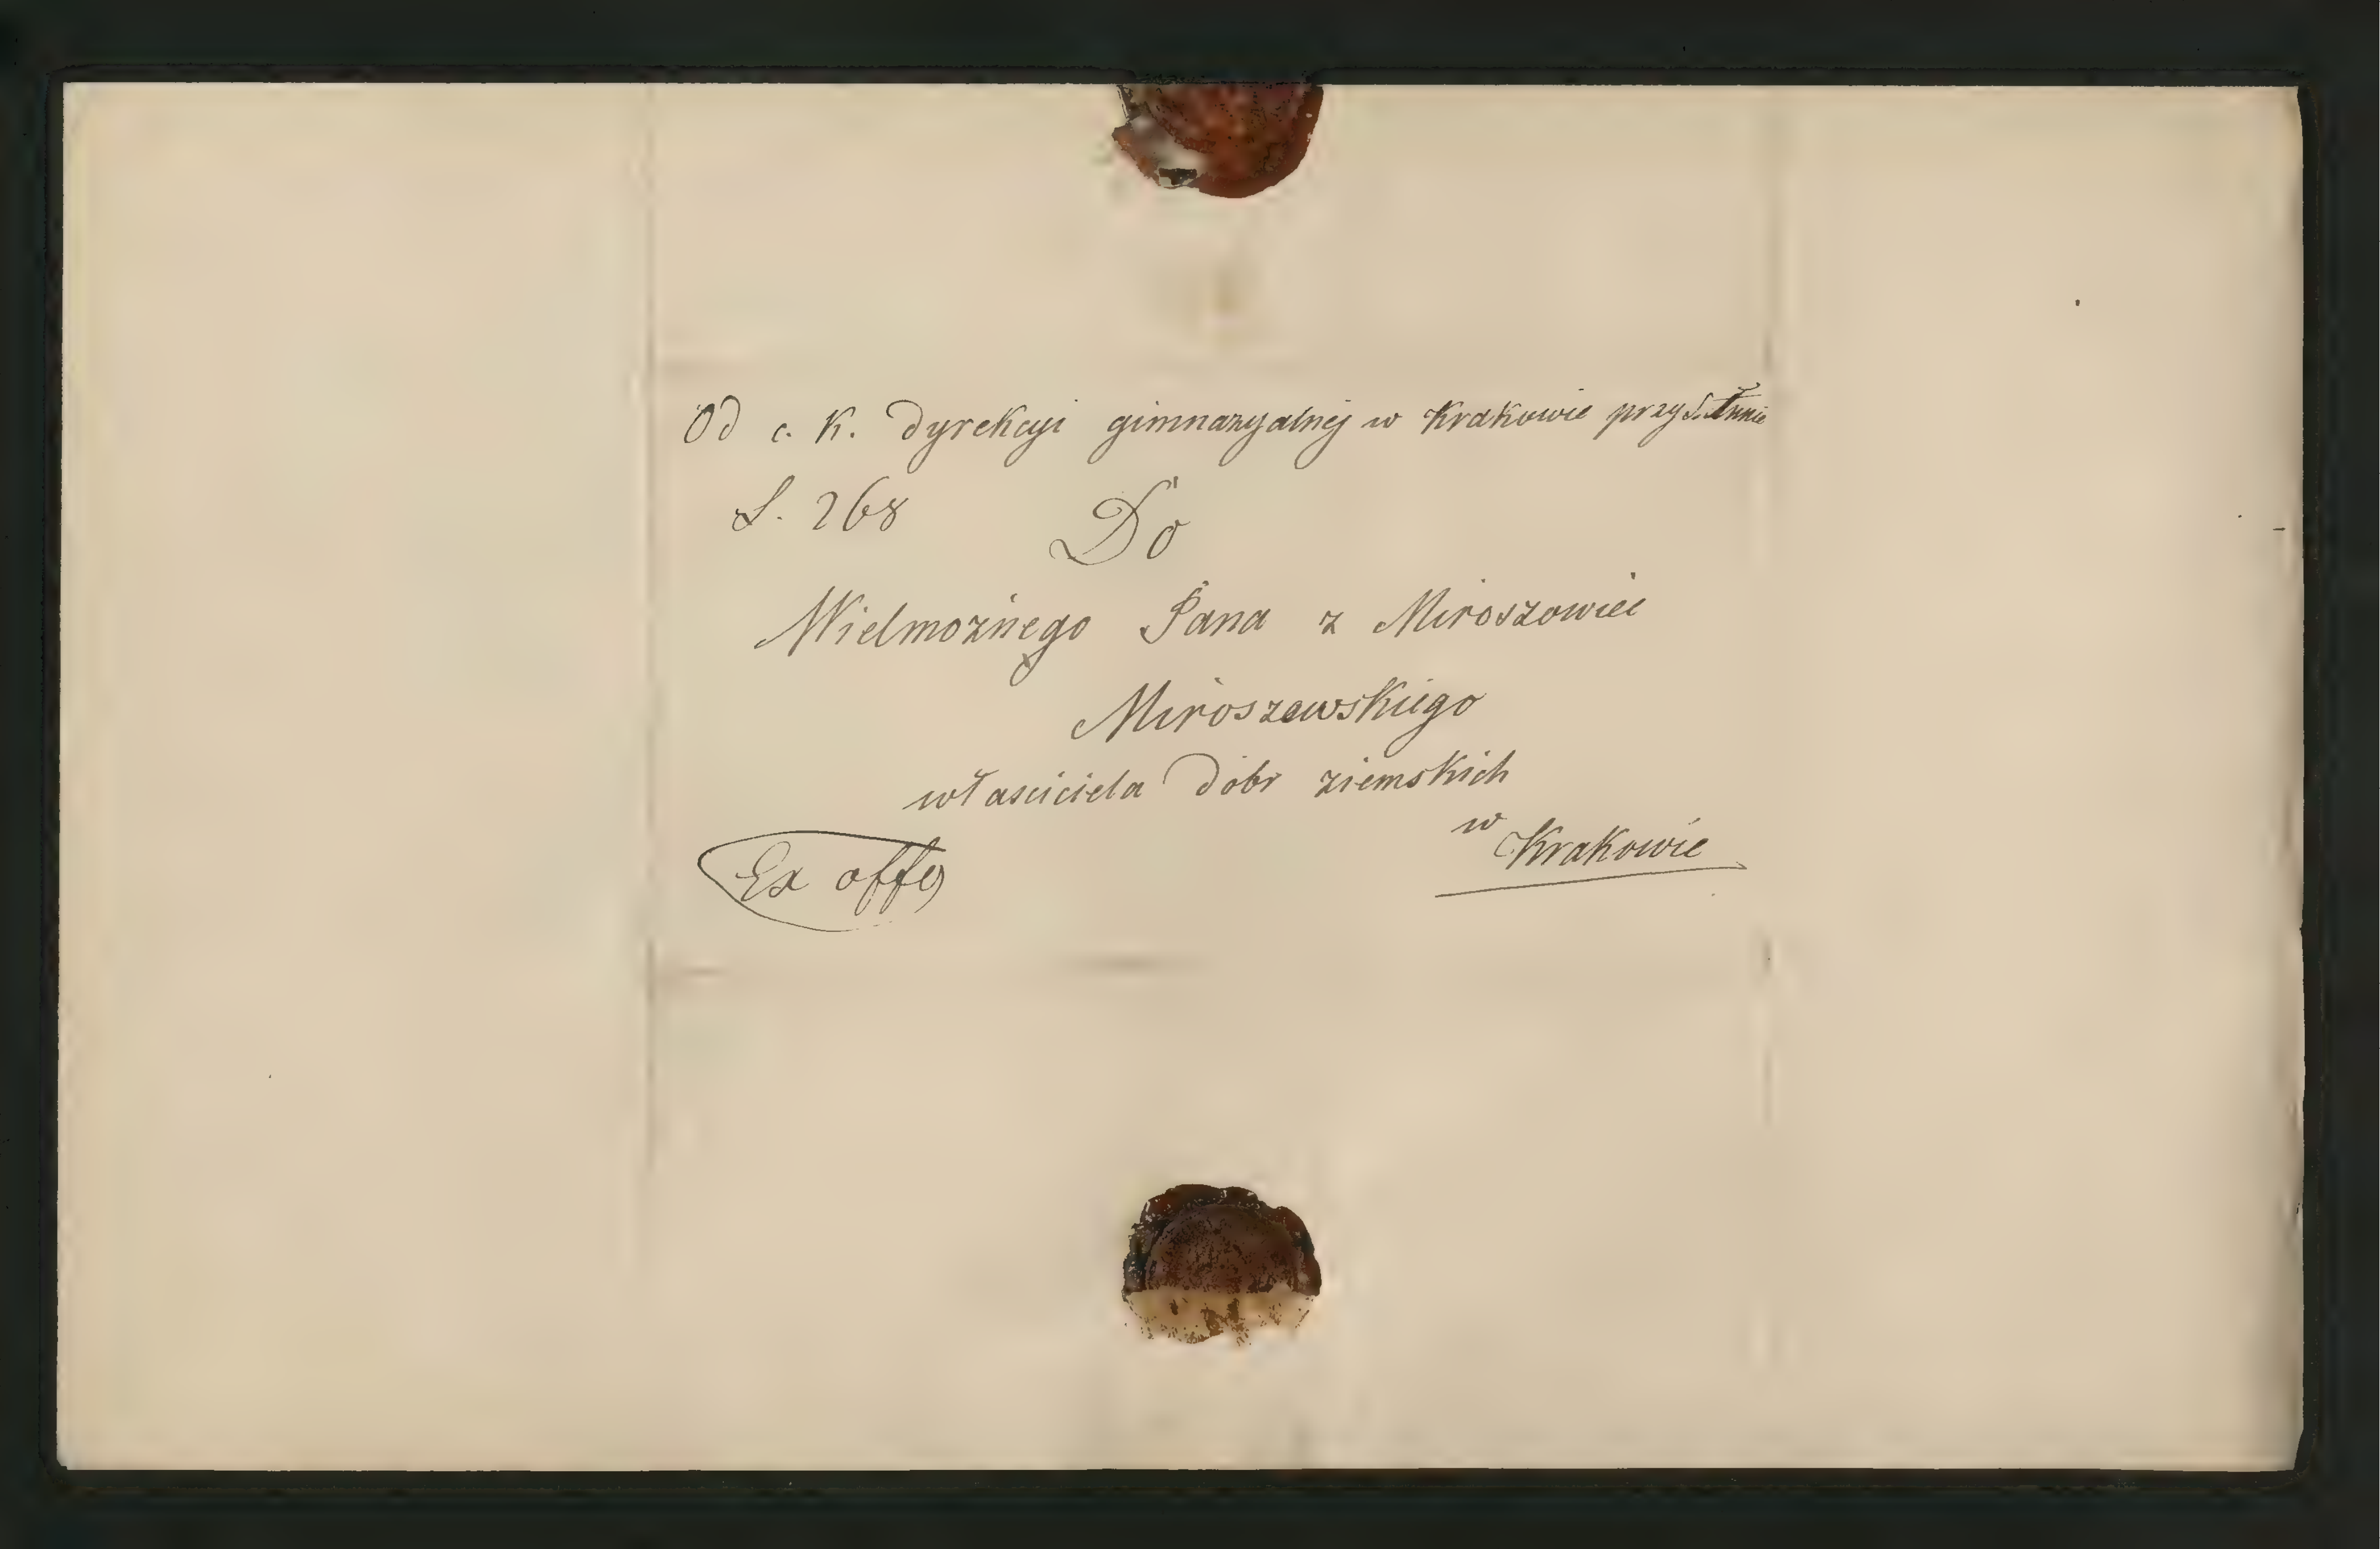 Od c. K. Dyrekcyi gimnazyalnej w Krakowie przy S. Annie
L. 268
Do
Wielmożnego Pana z Miroszowic
Miroszewskiego
właściciela dóbr ziemskich
w Krakowie
Ex offo